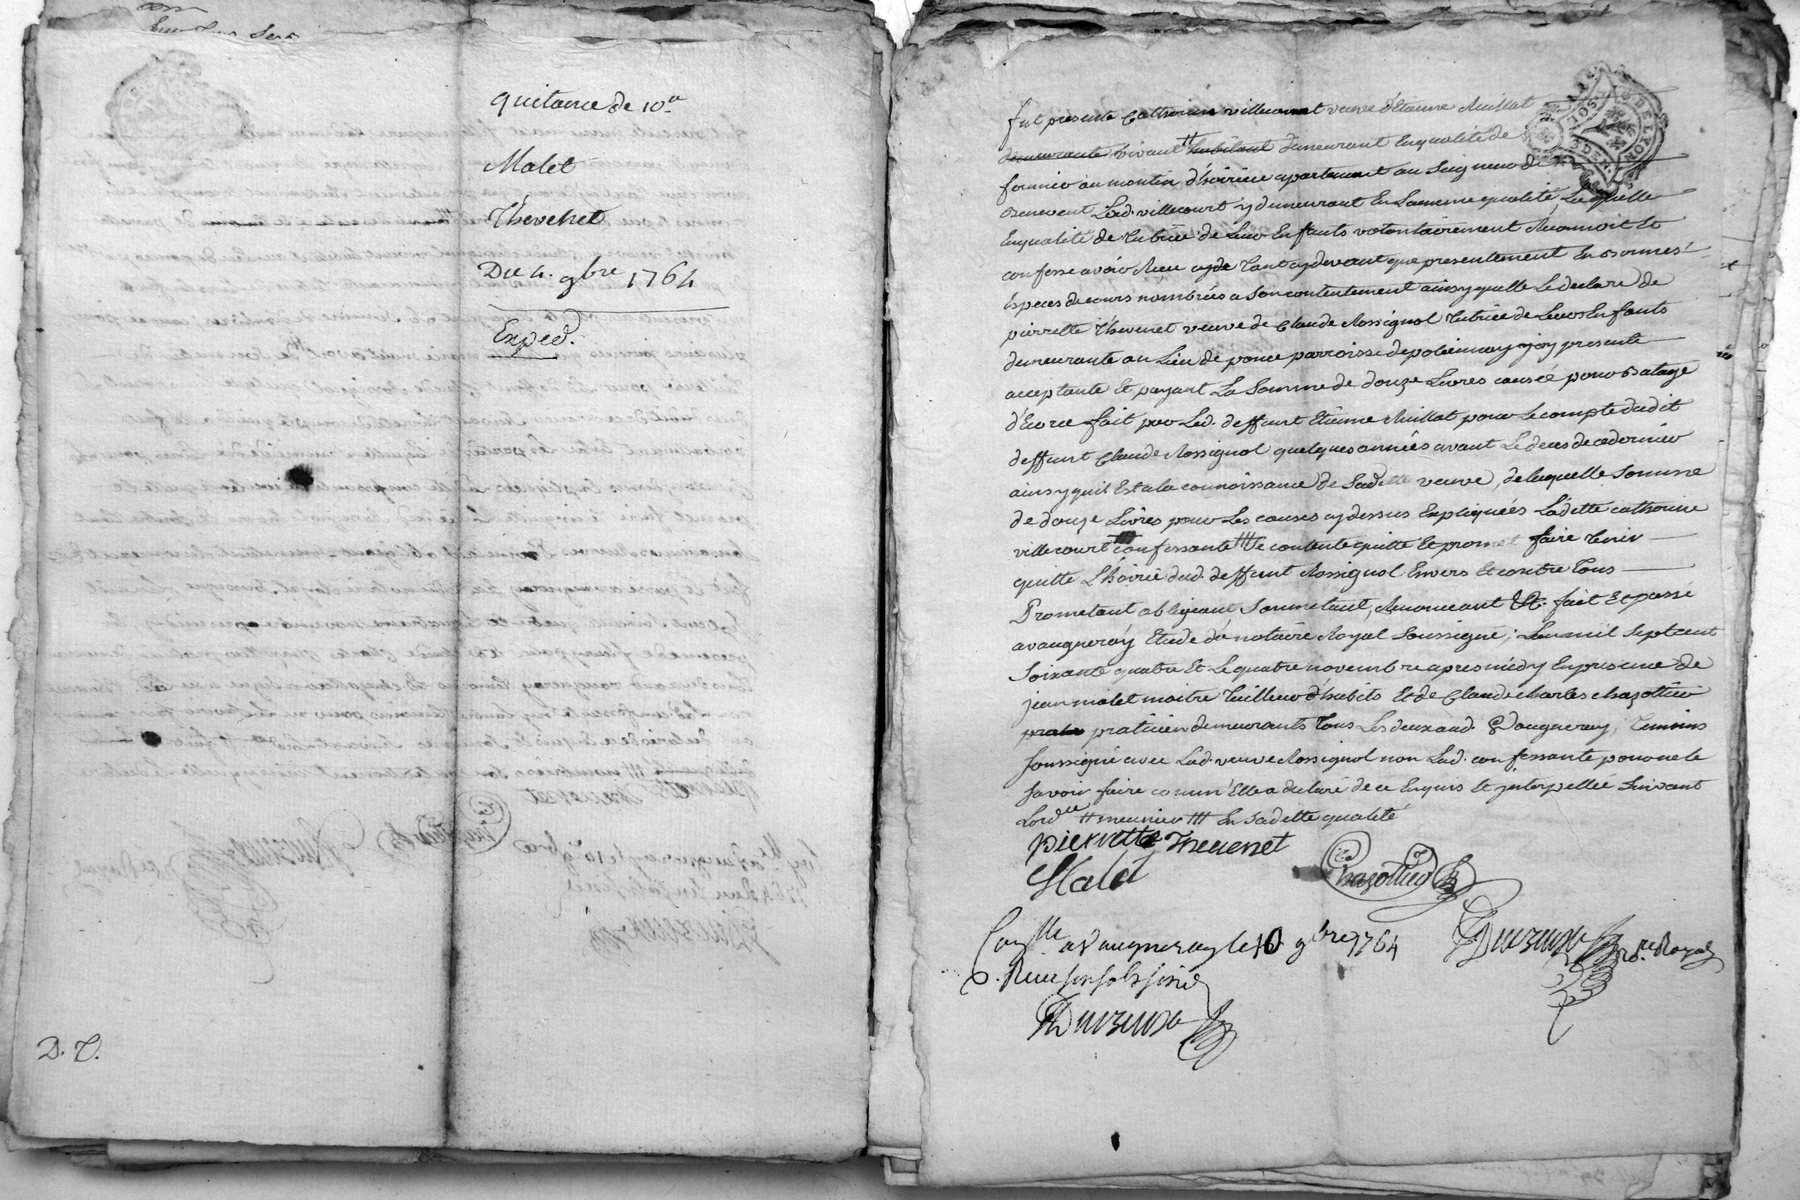 quitance de 10ˡˡ
Malet
Thevenet
Du 4. 9bre 1764
Exped.
D. T.
fut presente Catherine villecourt veuve d'Etienne Muillat
demeurante vivant habitant demeurant En qualité de
fermier au moulin d'hoirieu apartenant au Seigneur de
Benevent Lad. villecourt y demeurant En La meme qualité, Laquelle
En qualité de Tutrice de Leurs Enfants volontairement Reconnoit Et
confesse avoir Reçu cyde tant cydevant que presentement En bonnes
Especes de cours nombrées a Son contentement ainsy quelle Le declare de
pierrette Thevenet veuve de Claude Rossignol Tutrice de Leurs Enfants
demeurante au Lieu de ponce parroisse de poleinnay icy presente
acceptante Et payant La Somme de douze Livres causée pour batage
d'Ecorce fait par Led. deffunt Etienne Muillat pour Le compte dudit
deffunt Claude Rossignol quelques années avant Le deces de ce dernier
ainsy quil Est a la connoissance de Sadette veuve, de laquelle Somme
de douze Livres pour Les causes cydessus Expliquées Ladette catherine
villecourt confessante Se contente quitte Et promet faire Tenir
quitte L'hoirie dud. deffunt Rossignol Envers Et contre Tous
Promettant obligeant Soumettant, Renonceant &. fait Et passé
a vaugneray Etude du notaire Royal Soussigné; Lan mil Sept cent
Soixante quatre Et Le quatre novembre apres midy En presence de
jean malet maitre Tailleur d'habits Et de Claude charles chazottier
praticien demeurants Tous Les deux aud. Vaugneray, Temoins
Soussigné avec Lad. veuve Rossignol non Lad. confessante pour ne le
Savoir faire comm'Elle a declaré de ce Enquis Et jnterpellée Suivant
Lord.ce # meunier ### En Sadette qualité
pierrette Thevenet
Malet
Chazottier
n.re Royal
Con.lle a Vaugneray le 10 9bre 1764